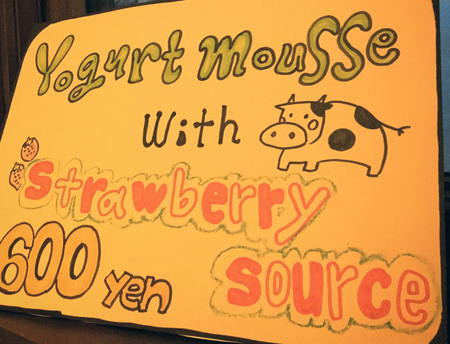 Yogurt mousse
with
strawberry
600 yen source